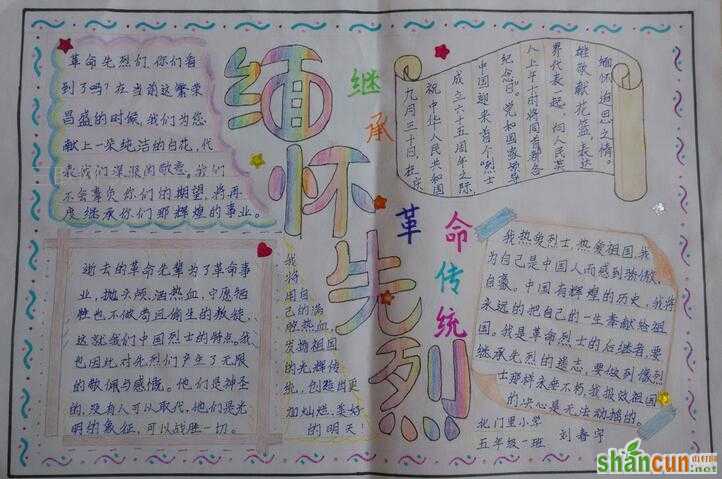 革命先烈们,你们看
到了吗?在当前这繁荣
昌盛的时候,我们为您
献上一朵纯洁的白花,代
表我们深深的敬意。我们
不会辜负你们的期望,将再
度继承你们那辉煌的事业。
缅怀先烈
继承
革命传统
九月三十日,在庆
祝中华人民共和国
成立六十五周年之际,
中国迎来首个“烈士
纪念日”。党和国家领导
人上午十时将同首都各
界代表一起,向人民英
雄敬献花篮,表达
缅怀追思之情。
逝去的革命先辈为了革命事
业,抛头颅、洒热血,宁愿牺
牲也不做苟且偷生的教徒,
这就我们中国烈士的特点。我
也因此对先烈们产生了无限
的敬佩与感慨。他们是神圣
的,没有人可以取代,他们是光
明的象征,可以战胜一切。
我
将
用自
己的满
腔热血,
发扬祖国
的光辉传
统,创造出更
加灿烂、美好
的明天!
我热爱烈士,热爱祖国,我
为自己是中国人而感到骄傲、
自豪。中国有辉煌的历史,我将
永远的把自己的一生奉献给祖
国。我是革命烈士的后继者,要
继承先烈的遗志,要做到像烈
士那样永垂不朽,我报效祖国
的决心是无法动摇的。
北门里小学
五年级一班 刘春宇
shancun
.net